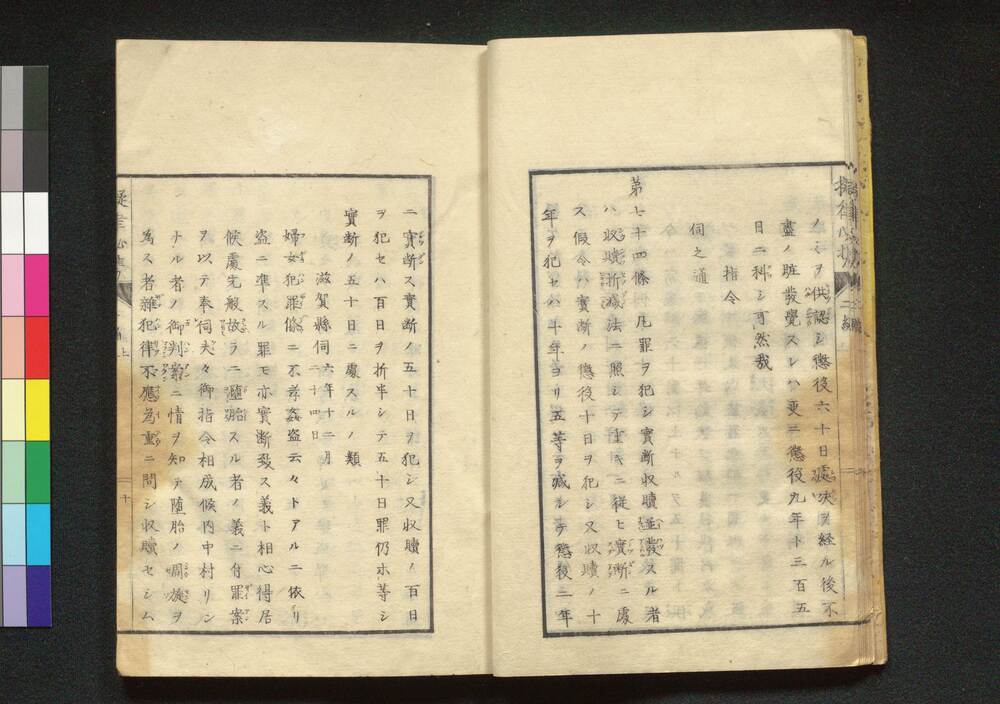 ノミヲ供認シ懲役六十日處決ヲ経ル後不
盡ノ賍發覺スレハ更ニ懲役九年ト三百五
日ニ科シ可然哉
指令
伺之通
第七十四條凡罪ヲ犯シ實断収贖並發スル者
ハ収贖折減法ニ照シテ重キニ從ヒ實断ニ處
ス假令ハ實断ノ懲役十日ヲ犯シ又収贖ノ十
年ヲ犯セハ十年ヨリ五等ヲ減シテ懲役二年
ニ實断ス實断ノ五十日ヲ犯シ又収贖ノ百日
ヲ犯セハ百日ヲ折半シテ五十日罪仍ホ等シ
實断ノ五十日ニ處スルノ類
滋賀縣伺六年十二月二十四日
婦女犯罪條ニ不孝姦盗云々トアルニ依リ
盗ニ準スル罪モ亦實断致ス義ト相心得居
候處先般故ラニ墮胎スル者ノ義ニ付罪案
ヲ以テ奉伺夫々御指令相成候内中村リン
ナル者ノ御判籍ニ情ヲ知テ墮胎ノ周旋ヲ
為ス者雜犯律不應為重ニ問シ収贖セシム
十